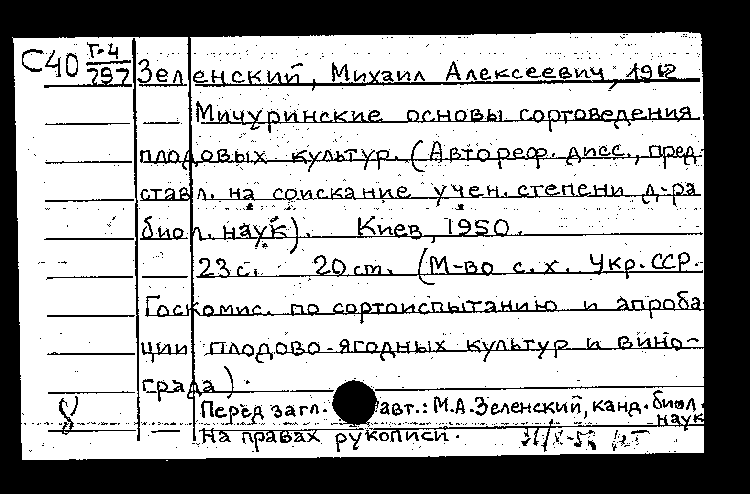 С40 Г-4
797 Зеленский, Михаил Алексеевич, 1912
— Мичуринские основы сортоведения
плодовых культур. (Автореф. дисс., пред-
ставл. на соискание учен. степени д-ра
биол. наук). Киев, 1950.
— 23 с. 20 см. (М-во с. х. Укр. ССР.
Госкомис. по сортоиспытанию и апроба
ции плодово-ягодных культур и вино-
града).
Перед загл. авт.: М.А. Зеленский, канд. биол.
наук
8 — На правах рукописи.